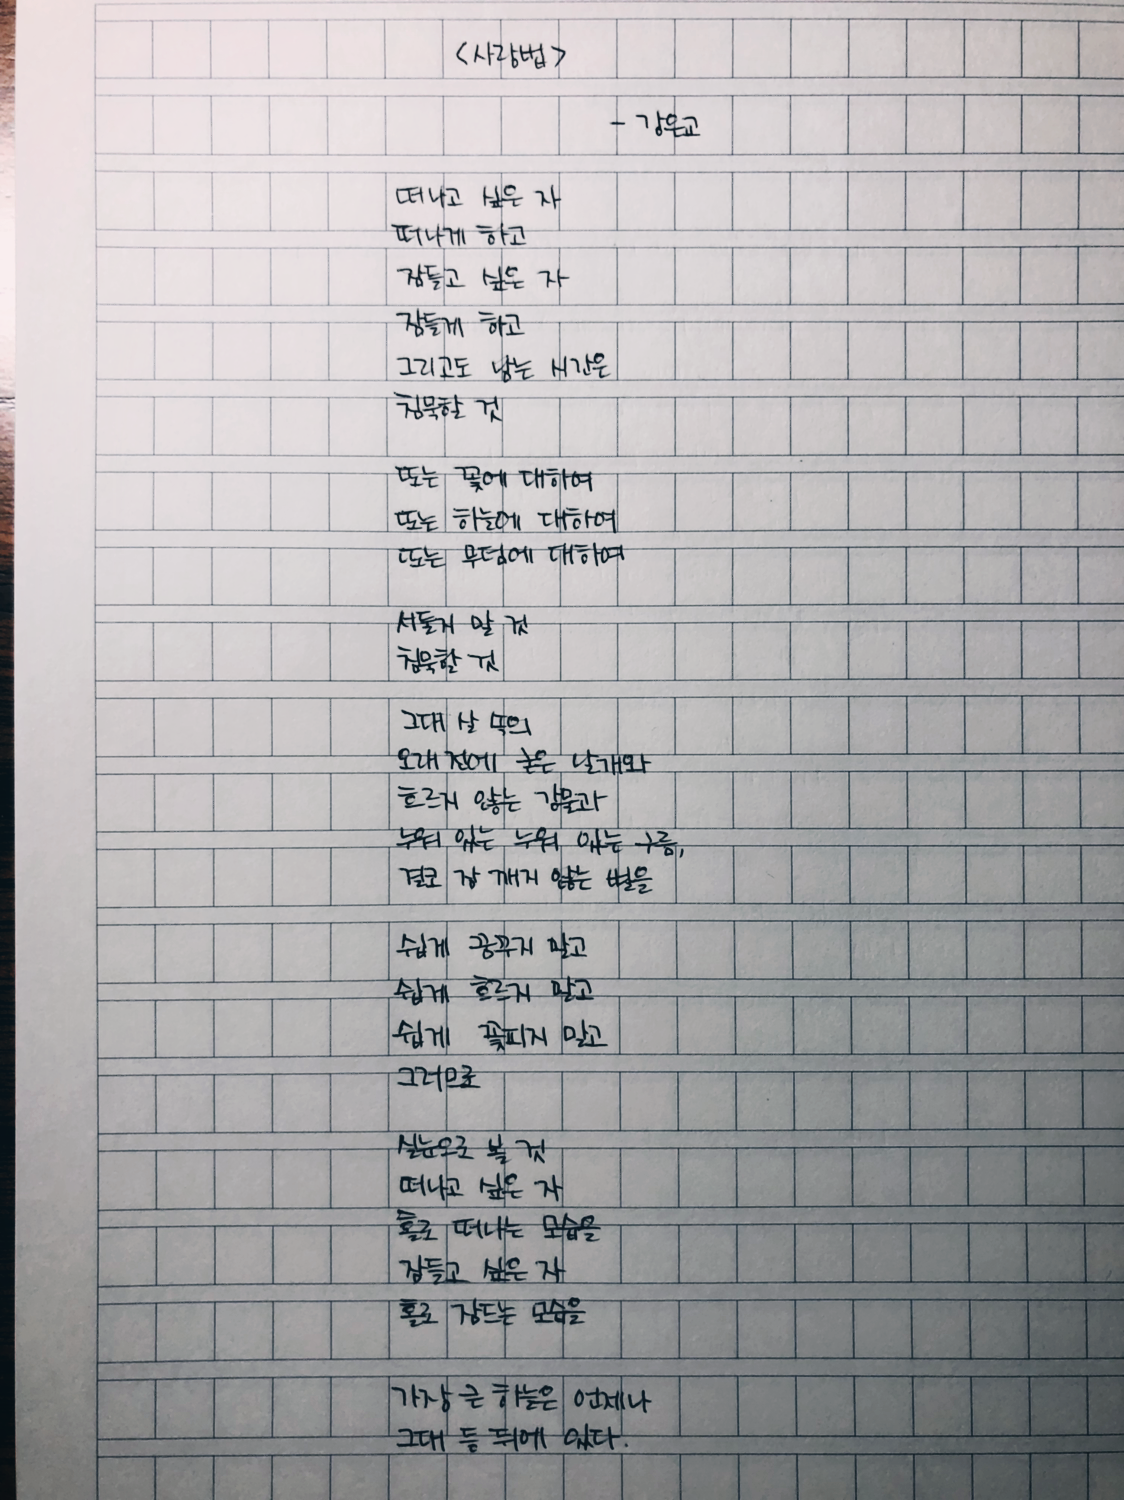 <사랑법>
- 강은교
떠나고 싶은 자
떠나게 하고
잠들고 싶은 자
잠들게 하고
그리고도 남는 시간은
침묵할 것
또는 꽃에 대하여
또는 하늘에 대하여
또는 무덤에 대하여
서둘지 말 것
침묵할 것
그대 살 속의
오래 전에 굳은 날개와
흐르지 않는 강물과
누워 있는 누워 있는 구름,
결코 잠 깨지 않는 별을
쉽게 꿈꾸지 말고
쉽게 흐르지 말고
쉽게 꽃피지 말고
그러므로
실눈으로 볼 것
떠나고 싶은 자
홀로 떠나는 모습을
잠들고 싶은 자
홀로 잠드는 모습을
가장 큰 하늘은 언제나
그대 등 뒤에 있다.